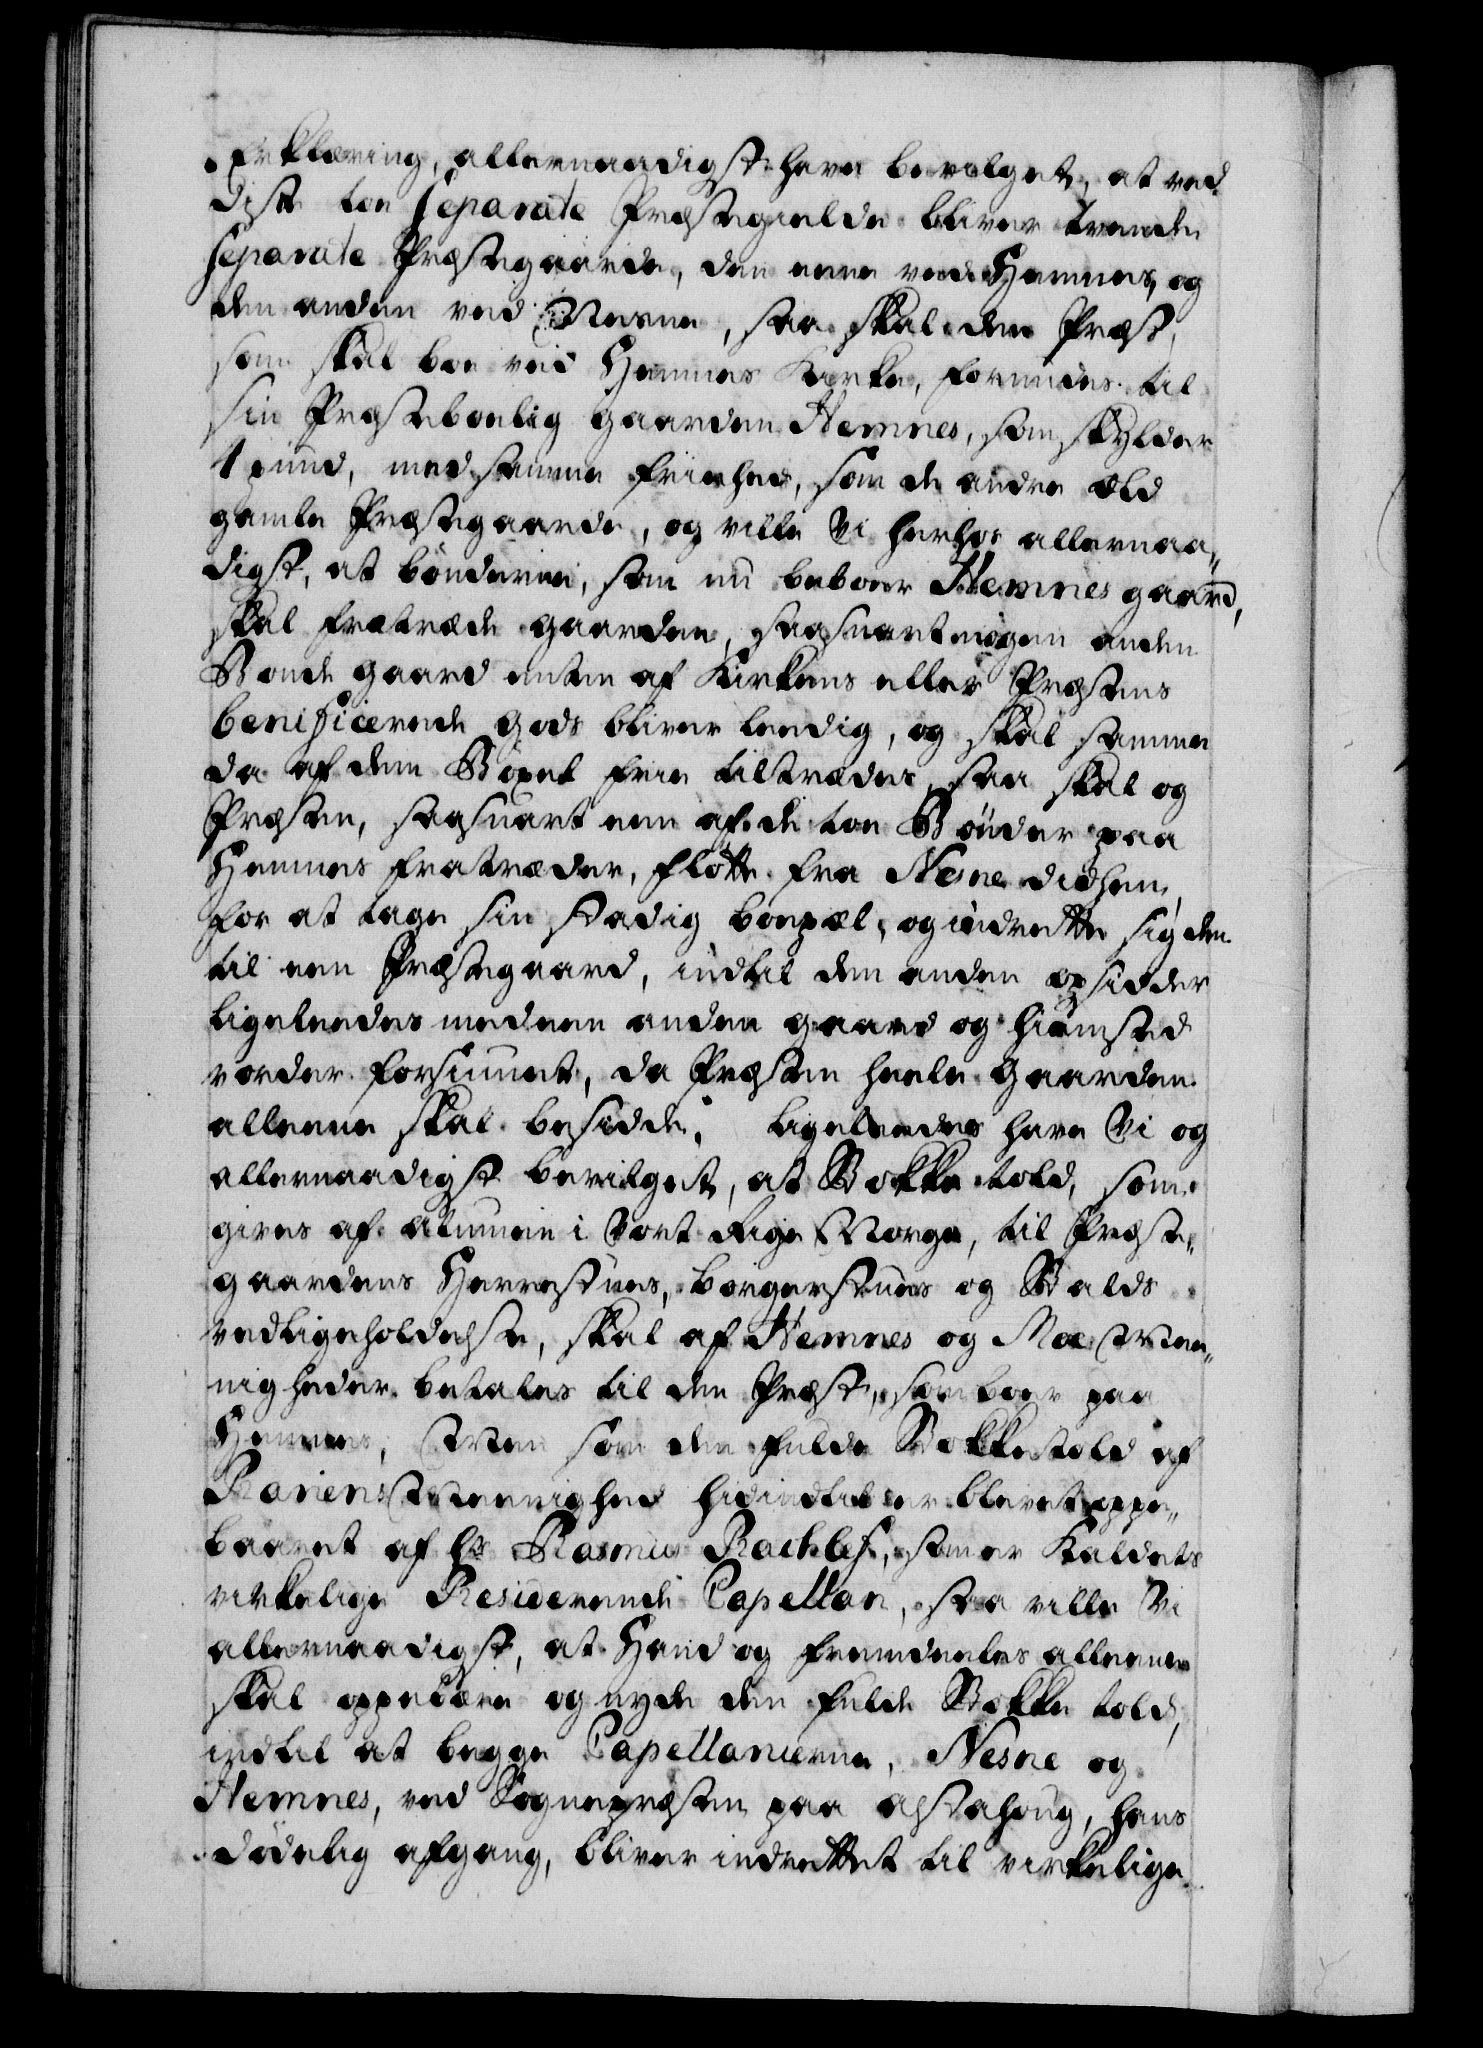 Erklæring, allernaadigst have bevilget, at ved
disse toe separate Præstegields bliver tvende
separate Præstegaarde, den eene ved Hemnes, og
den anden ved Nesne, saa skal den Præst,
som skal boe ved Hemnes Kirke, forundes til
sin Præstebolig gaarden Hemnes, som skylder
4 pund, med samme friehed, som de andre æld
gamle Præstegaarde, og ville Vi herhos allernaa„
digst, at bønderne, som nu beboer Hemnes gaard,
skal fratræde gaarden, saasnart nogen anden
Bonde gaard enten af Kirkens eller Præstens
benificerede Gods bliver leedig, og skal samme
da af dem Bøxel frie tiltrædes, saa skal og
Præsten, saasnart een af de toe Bønder paa
Hemnes fratræder, flötte fra Nesne didhen,
for at tage sin stadig boepæl, og indrette sig den
til een Præstegaard, indtil den anden opsidder
ligeleedes med een anden gaard og hiemsted
vorder forsiunet, da Præsten heele Gaarden
alleene skal besidde. Ligeleedes have Vi og
allernaadigst bevilget, at Bokke told, som
gives af almuen i Vort Rige Norge, til Præste„
gaardens Herrestues, borgerstues og Stalds
vedligeholdelse, skal af Hemnes og Moe Mee„
nigheder betales til den Præst, som boer paa
Hemnes, Men som den fulde Bokketold af
Ranens Meenighed hidindtil er blevet oppe„
baaret af Hr Rasmus Rachlef, som er Kaldets
virkelige Residerende Capellan, saa ville Vi
allernaadigst, at Hand og fremdeeles alleene
skal oppebære og nyde den fulde Bokke told,
indtil at begge Capellanierne, Nesne og
Hemnes, ved Sognepræsten paa Alstahoug, hans
dødelig afgang, bliver indrettet til virkelige